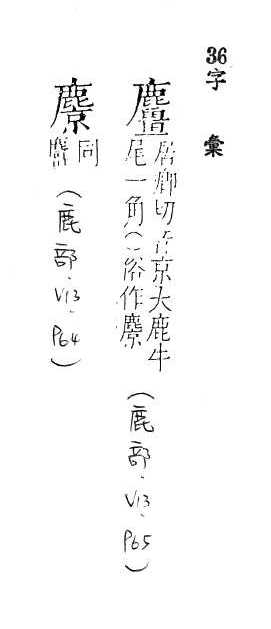 36字彙
麠
居卿切音京大鹿牛
尾一角○俗作麖
(鹿部、V13、P65)
麖
同
麠
(鹿部、V13、P64)